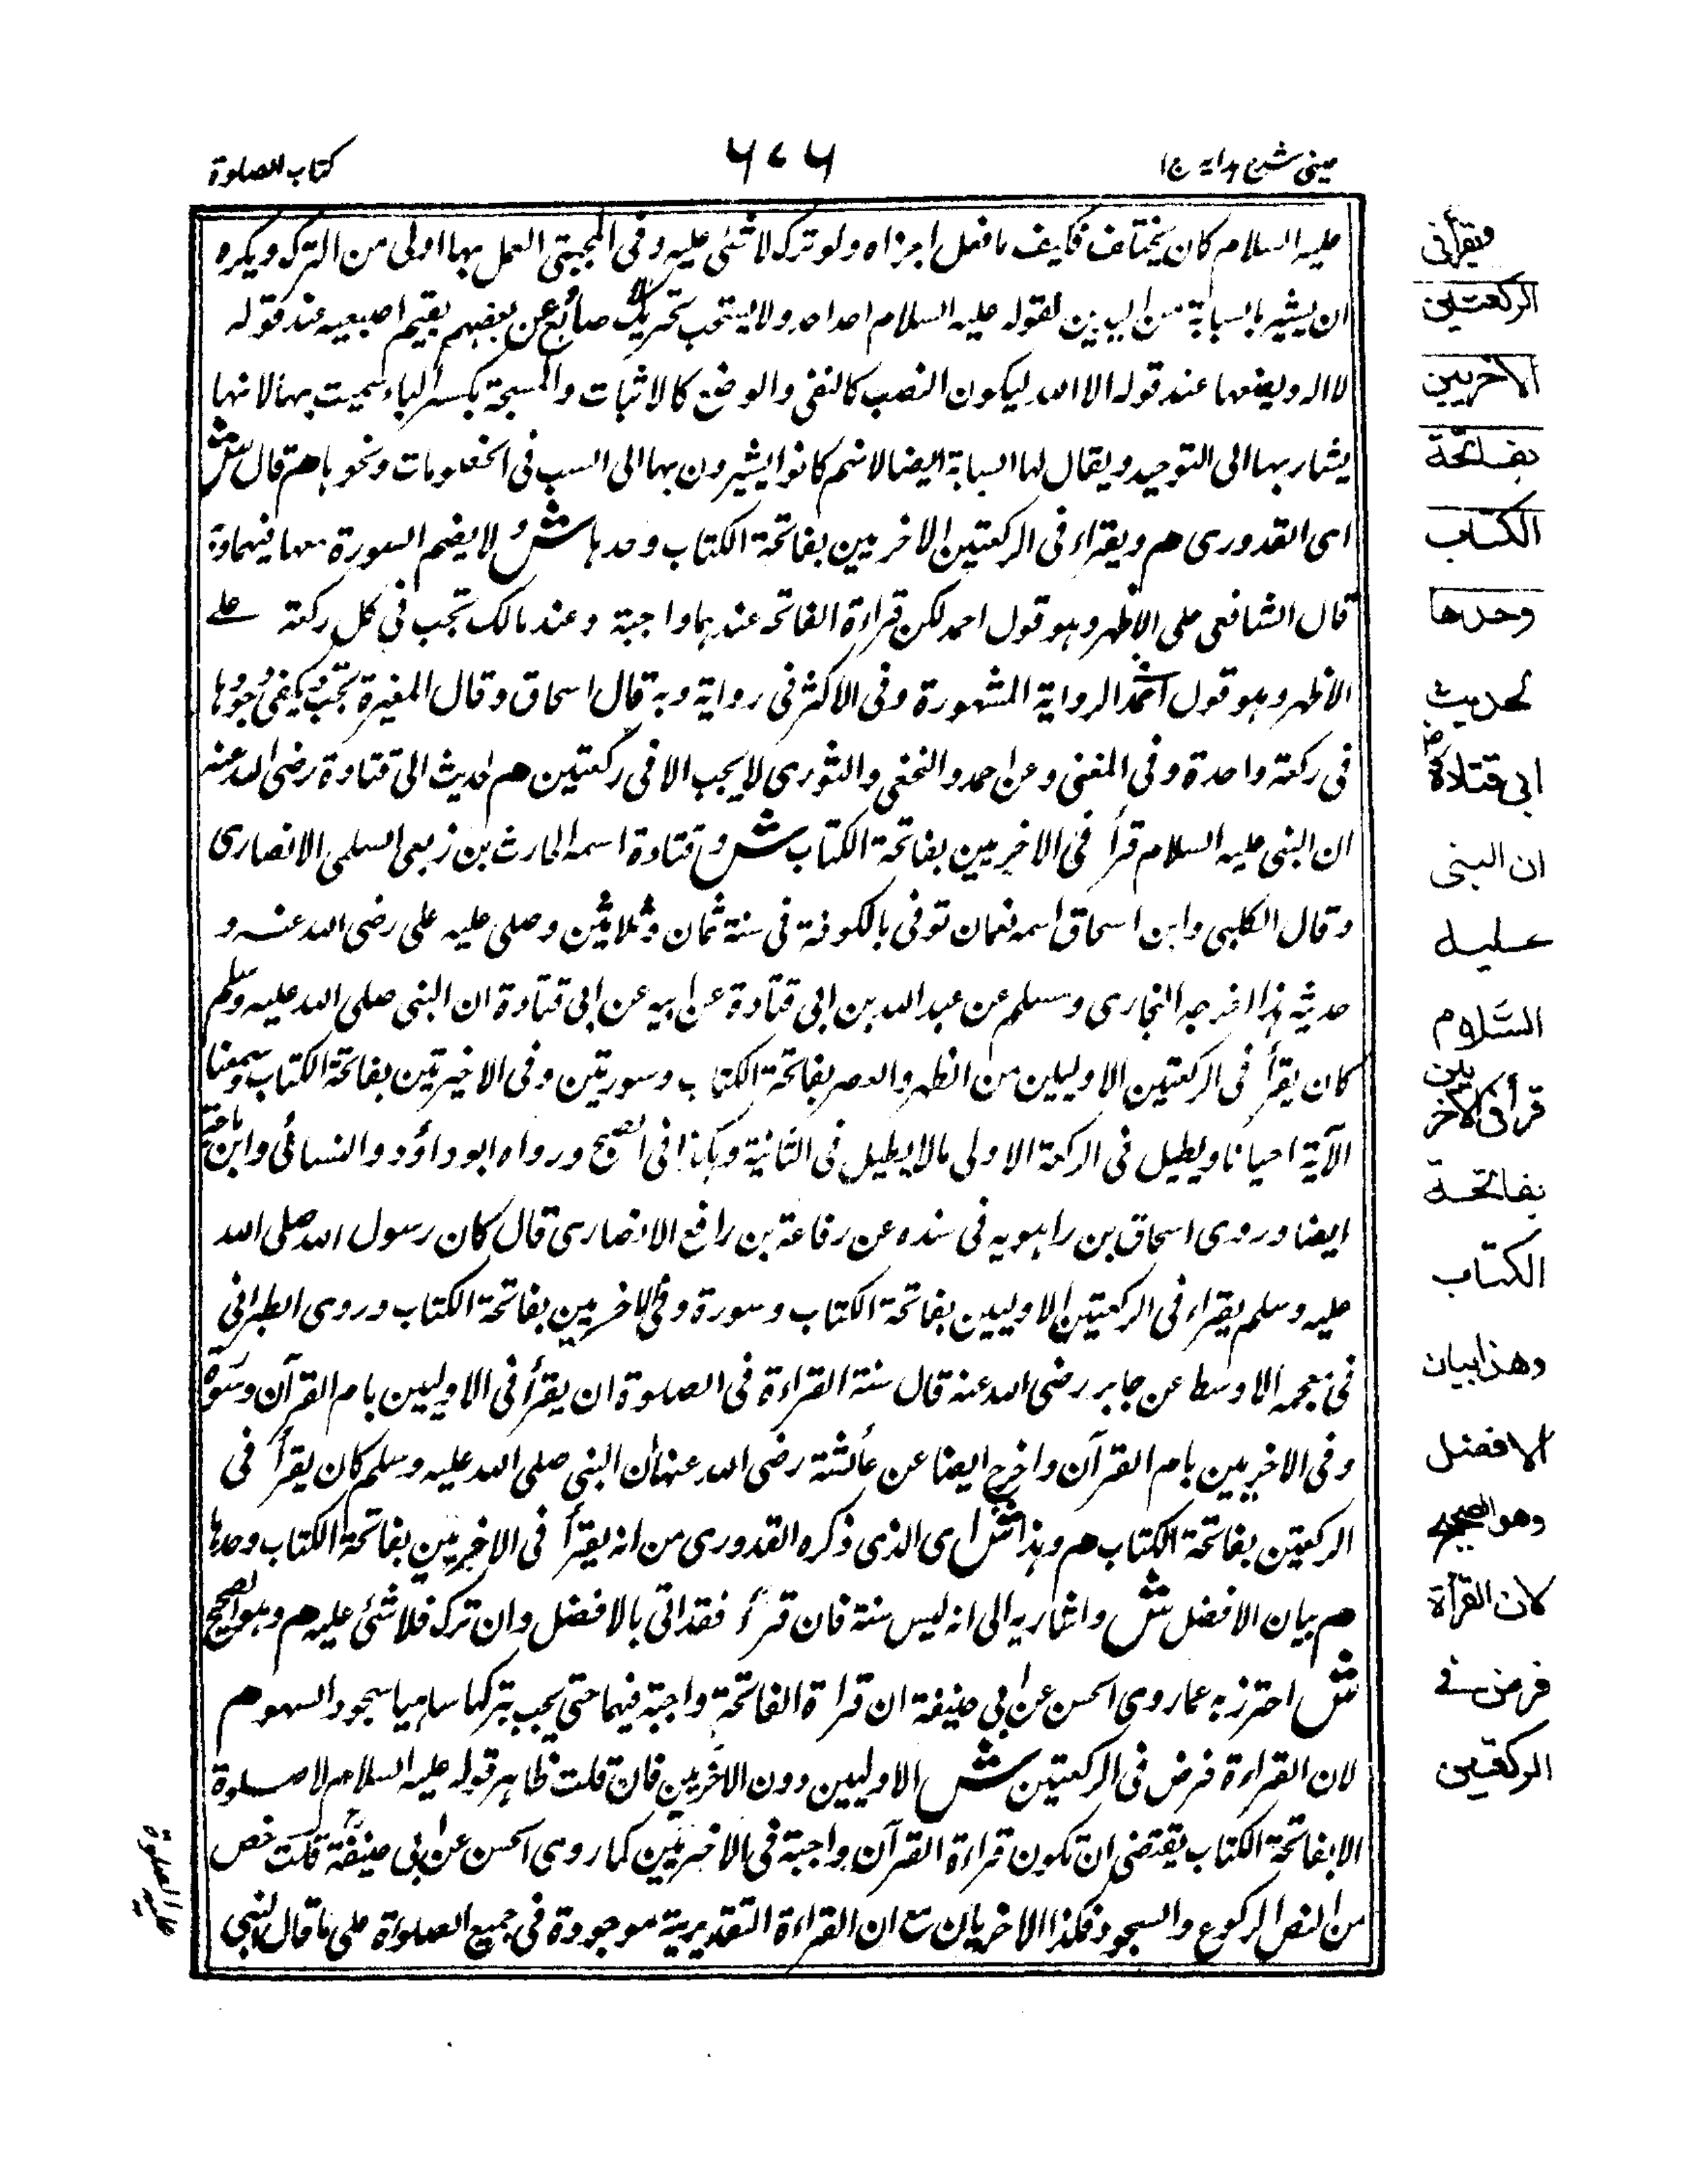 عینی شرح هدایه ج ١
٦٧٦
کتاب الصلوة
علیه السلام کان یختلف فکیف ما فعل اجزاه ولو ترک لا شئی علیه وفی المجتبی العمل بها اولی من الترک ویکره
ان یشیر بالسبابة من الیدین لقوله علیه السلام احد احد ولا یستحب تحریک الاصابع عن بعضهم یقیم اصبعیه عند قوله
لا اله ویضعها عند قوله الا الله لیکون النصب کالنفی والوضع کالاثبات والمسبحة بکسر الباء سمیت بها لانها
یشار بها الی التوحید ویقال لها السبابة ایضا لانهم کانوا یشیرون بها الی السب فی الخصومات ونحوها هم قال ش
ای القدوری هم ویقراء فی الرکعتین الاخریین بفاتحة الکتاب وحدها ش ولا یضم السورة معها فیهما وبه
قال الشافعی علی الاظهر وهو قول احمد لکن قراءة الفاتحه عندهما واجبة وعند مالک تجب فی کل رکعة علے
الاظهر وهو قول احمد الروایة المشهورة وفی الاکثر فی روایة وبه قال اسحاق وقال المغیرة تجب ویکفی وجوبها
فی رکعة واحدة وفی المغنی وعن احمد والنخعی والثوری لا یجب الا فی رکعتین هم لحدیث ابی قتادة رضی الله عنه
ان النبی علیه السلام قرأ فی الاخریین بفاتحة الکتاب ش وقتادة اسمه الحارث بن ربعی السلمی الانصاری
وقال الکلبی وابن اسحاق اسمه نعمان توفی بالکوفة فی سنة ثمان وثلاثین وصلی علیه علی رضی الله عنه و
حدیثه هذا اخرجه البخاری ومسلم عن عبد الله بن ابی قتادة عن ابیه عن ابی قتادة ان النبی صلی الله علیه وسلم
کان یقرأ فی الرکعتین الاولیین من الظهر والعصر بفاتحة الکتاب وسورتین وفی الاخیرتین بفاتحة الکتاب وسمعنا
الآیة احیانا ویطیل فی الرکعة الاولی مالا یطیل فی الثانیة وهکذا فی الصبح ورواه ابو داؤد والنسائی وابن ماجة
ایضا وروی اسحاق بن راهویه فی سنده عن رفاعة بن رافع الانصاری قال کان رسول الله صلی الله
علیه وسلم یقراء فی الرکعتین الاولیین بفاتحة الکتاب وسورة وفی الاخریین بفاتحة الکتاب وروی الطبرانی
فی معجمه الاوسط عن جابر رضی الله عنه قال سنة القراءة فی الصلوة ان یقرأ فی الاولیین بام القرآن وسورة
وفی الاخریین بام القرآن واخرج ایضا عن عائشة رضی الله عنها ان النبی صلی الله علیه وسلم کان یقرأ فی
الرکعتین بفاتحة الکتاب هم وهذا ش ای الذی ذکره القدوری من انه یقرأ فی الاخریین بفاتحة الکتاب وحدها
هم بیان الافضل ش واشار به الی انه لیس سنة فان قرأ فقد اتی بالافضل وان ترک فلا شئی علیه هم وهو الصحیح
ش احترز به عما روی الحسن عن ابی حنیفة ان قراة الفاتحة واجبة فیهما حتی یجب بترکها ساهیا سجود السهو هم
لان القراءة فرض فی الرکعتین ش الاولیین دون الاخریین فان قلت ظاهر قوله علیه السلام لا صلوة
الا بفاتحة الکتاب یقتضی ان تکون قراءة القرآن واجبة فی الاخریین کما روی الحسن عن ابی حنیفة قلت خص
من النص الرکوع والسجود فکذا الاخریان مع ان القراءة التقدیریة موجودة فی جمیع الصلواة علی ما قال النبی
علیه الصلوة
ویقرأ فی
الرکعتین
الاخریین
بفاتحة
الکتاب
وحدها
لحدیث
ابی قتادة رض
ان النبی
علیه
السلام
قرأ فی الاخریین
بفاتحة
الکتاب
وهذا بیان
الافضل
وهو الصحیح
لان القرأة
فرض فے
الرکعتین